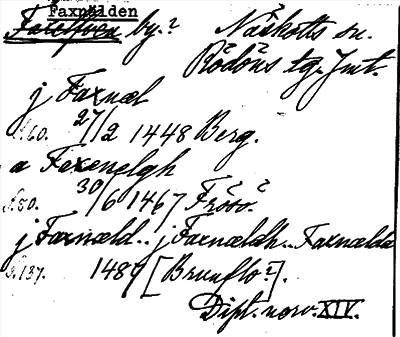 Faxnälden
by.² Näskotts sn.
Rödöns tg. Jmt.
j Faxnæl
s. 60. 27/2 1448 Berg.
a Faxenelgh
s. 80. 30/6 1467 Frösö.²
j Faxnæld.. j Faxnældh.. Faxnælda
s. 137. 1489 [Brunflo²].
Dipl. norv. XIV.